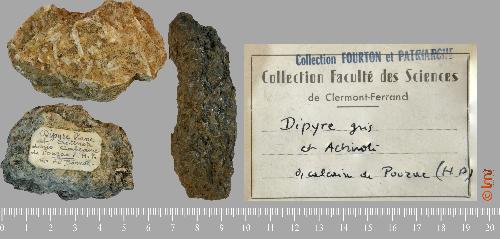 Collection FOURTON et PATRIARCHE
Collection Faculté des Sciences
de Clermont-Ferrand
Dipyre gris
et Actinote
calcaire de Pouzac (H.P)
Dipyre
calcaire
de Pouzac H.P.
0 1 2 3 4 5 6 7 8 9 10 11 12 13 14 15 16 17 18 19 20